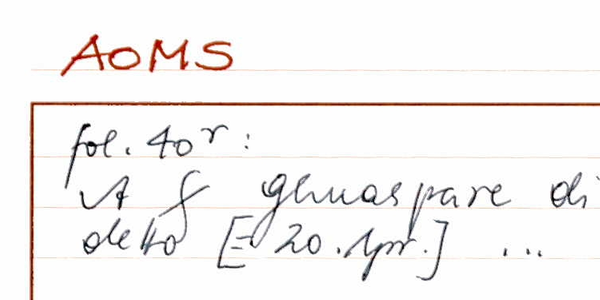 AOMS
fol. 40r:
A ghuaspare di
detto [= 20. Apr.] ...